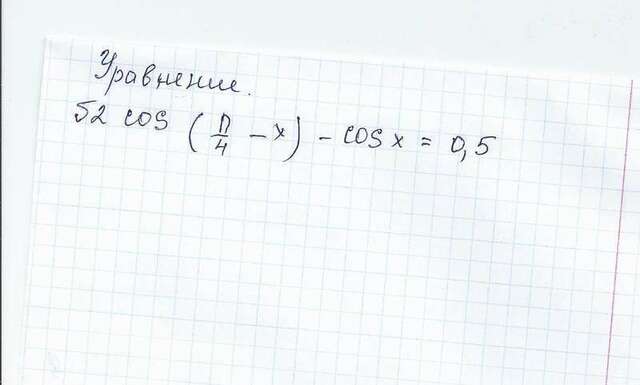 Уравнение.
√2 cos (π/4 - x) - cos x = 0,5